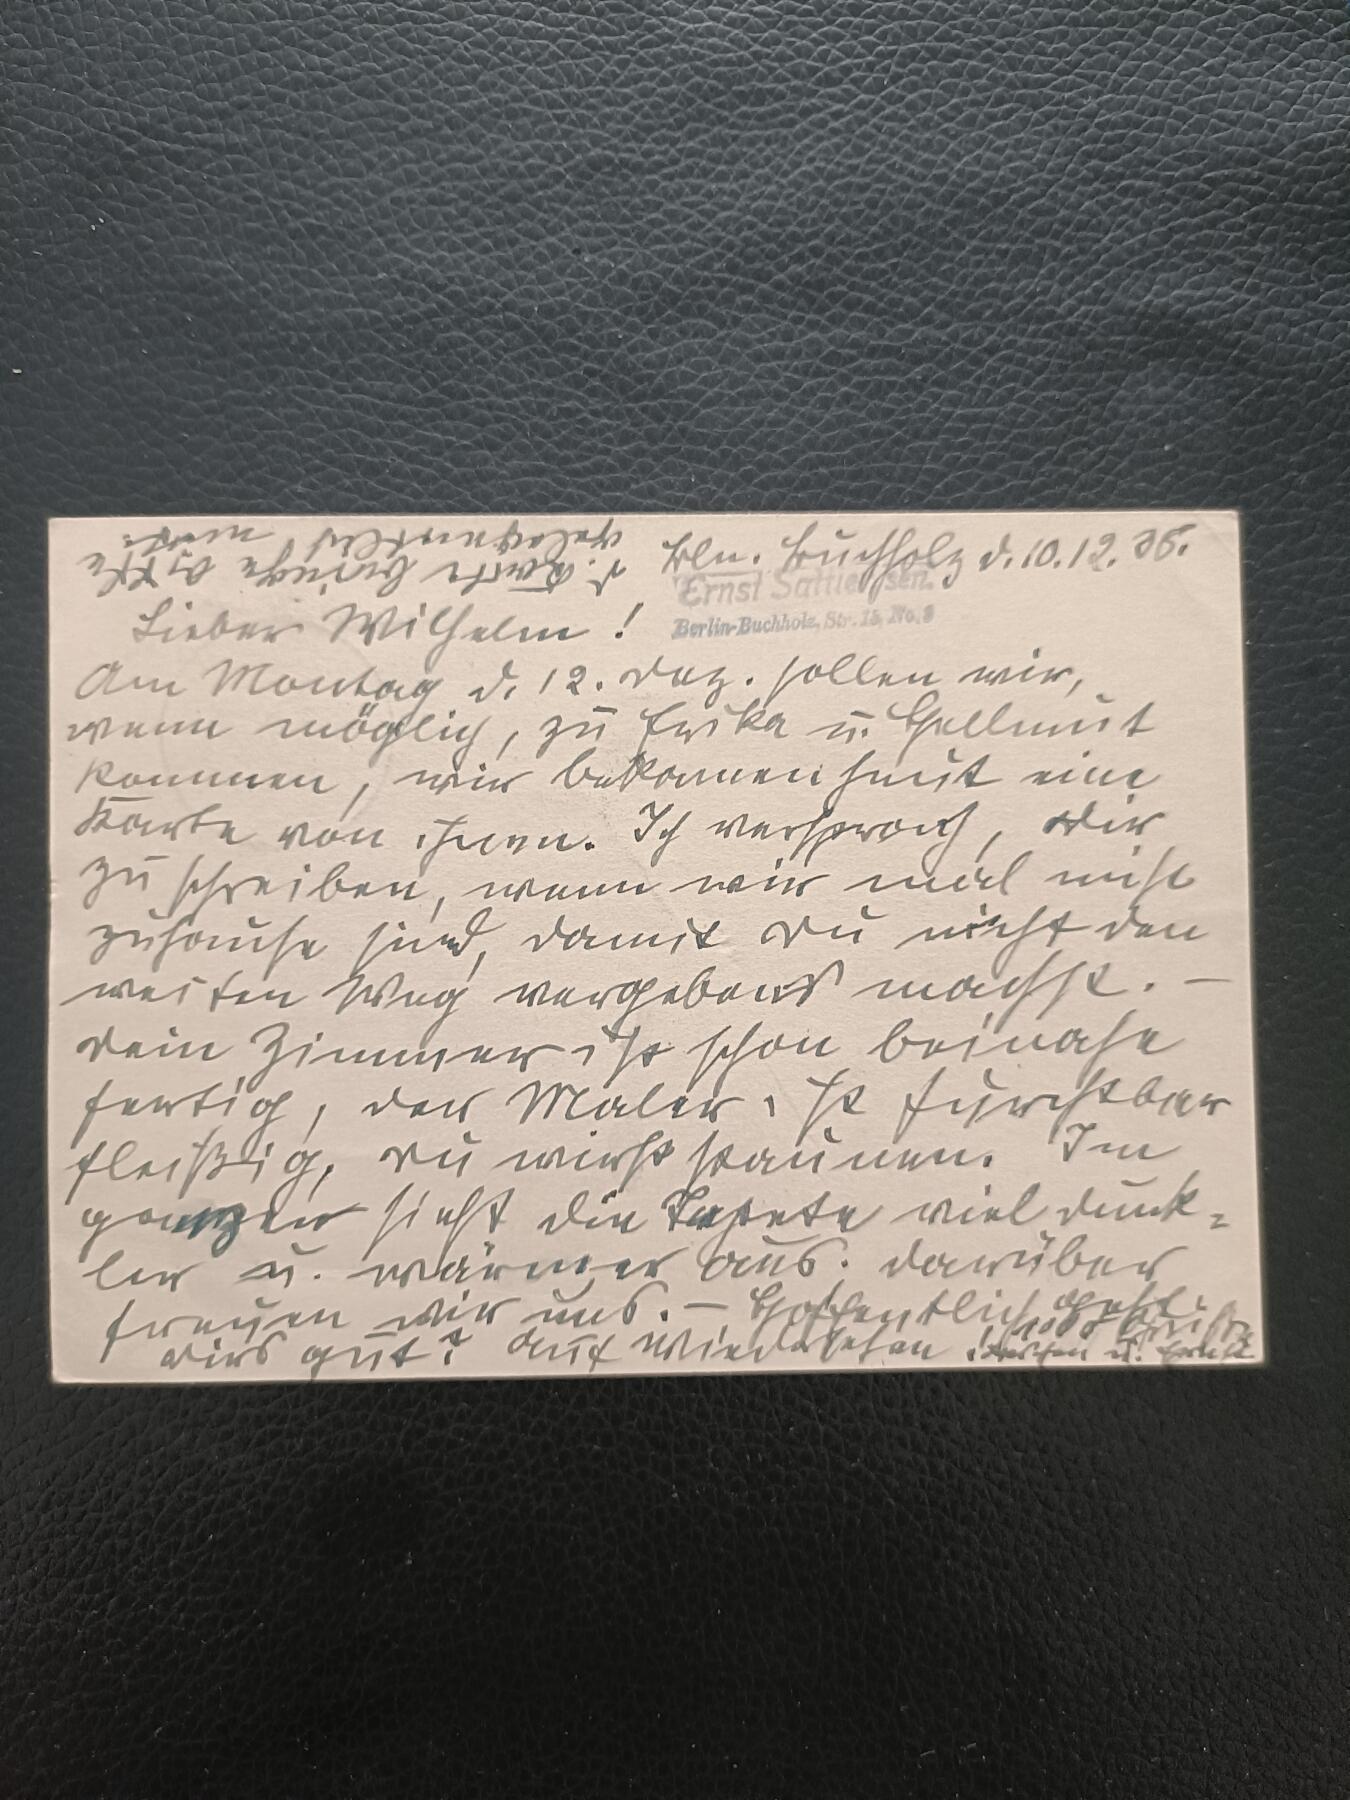 Bln. Buchholz d. 10.12.38.
Ernst Sattle sen.
Berlin-Buchholz, Str. 15, No. 8
Lieber Wilhelm!
Am Montag d. 12. Dez. sollen wir,
wenn möglich, zu Erika u. Hellmut
kommen, wir bekamen heut eine
Karte von ihnen. Ich versprach, Dir
zu schreiben, wenn wir mal nicht
zuhause sind, damit Du nicht den
weiten Weg vergebens machst. —
Dein Zimmer ist schon beinahe
fertig, der Maler ist furchtbar
fleißig, Du wirst staunen. Im
ganzen sieht die Tapete viel dunk-
ler u. wärmer aus. Darüber
freuen wir uns. — Hoffentlich geht
Dirs gut? Auf Wiedersehen!
d. Karte bringe bitte
gelegentlich mit.